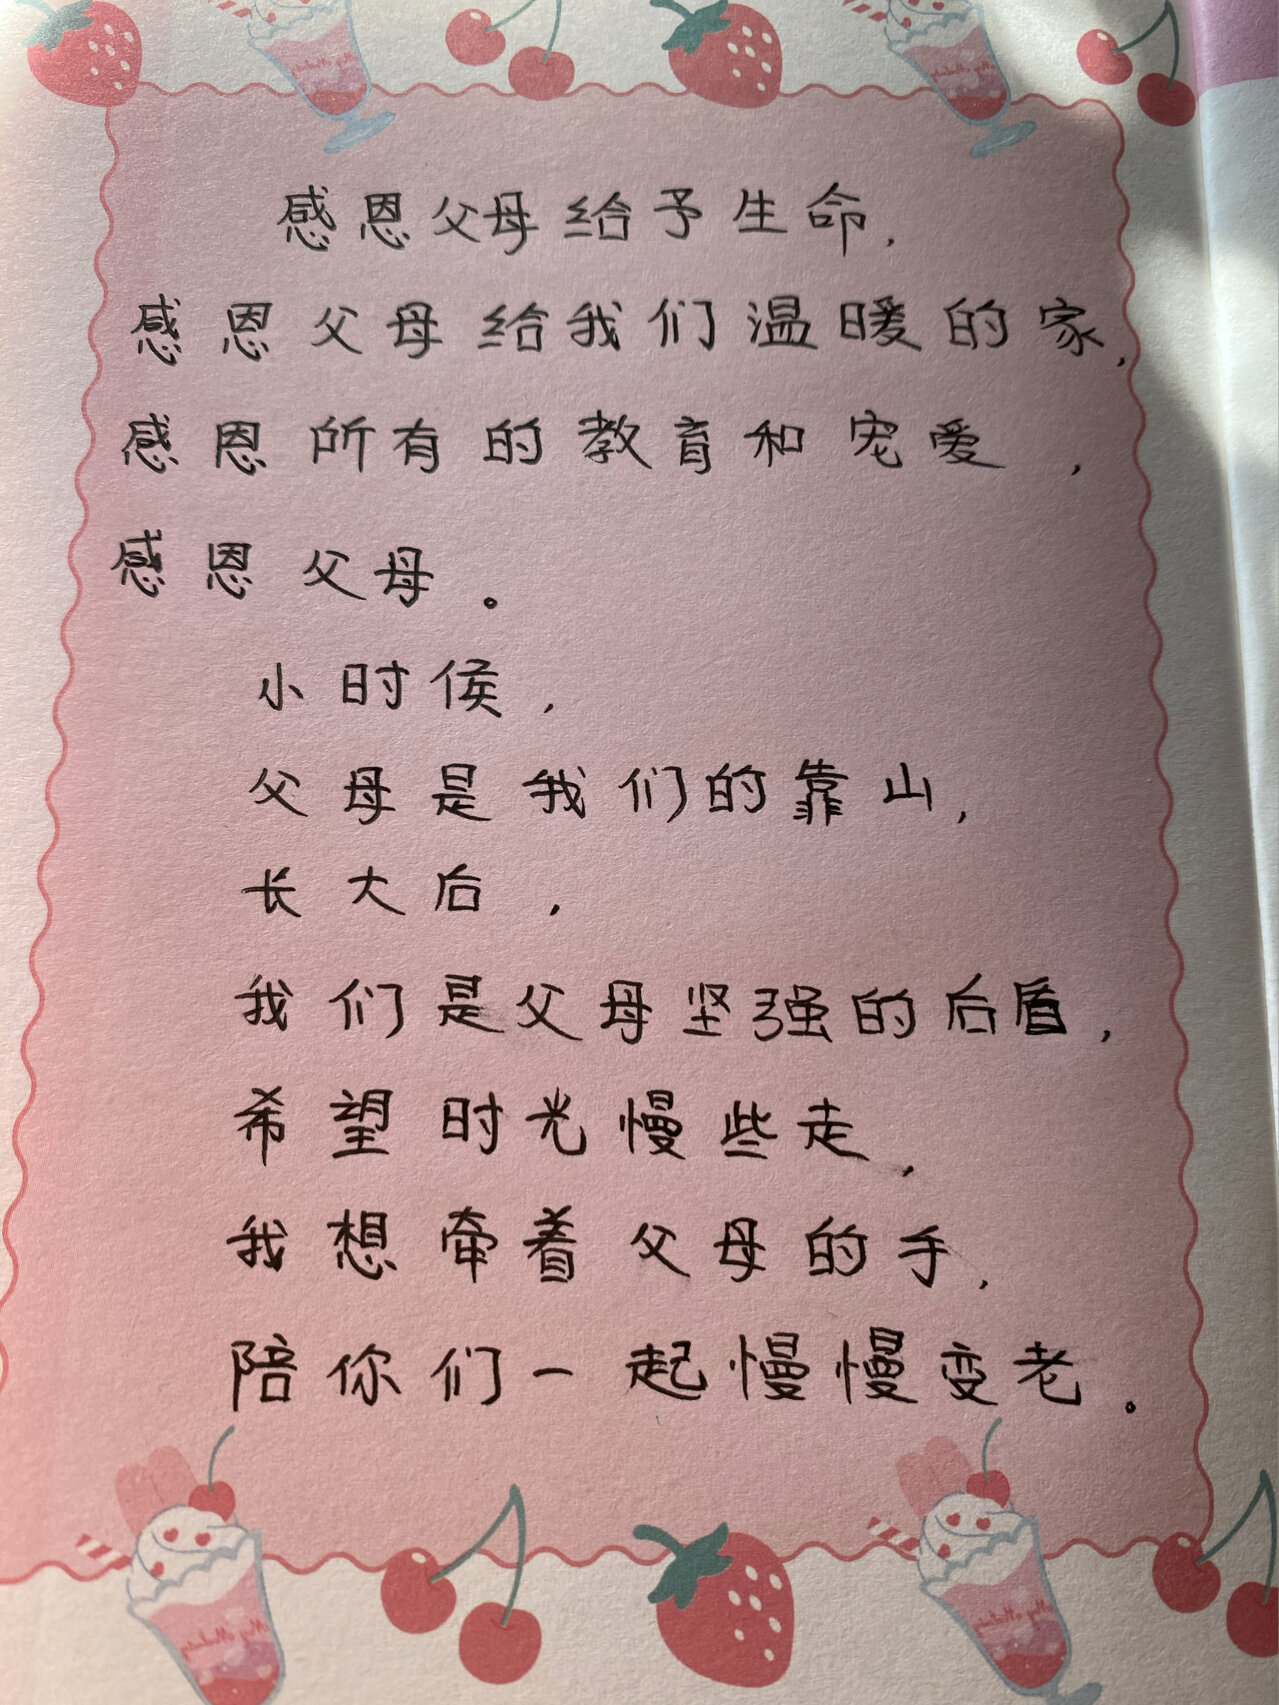 感恩父母给予生命，
感恩父母给我们温暖的家，
感恩所有的教育和宠爱，
感恩父母。
小时候，
父母是我们的靠山，
长大后，
我们是父母坚强的后盾，
希望时光慢些走，
我想牵着父母的手，
陪你们一起慢慢变老。